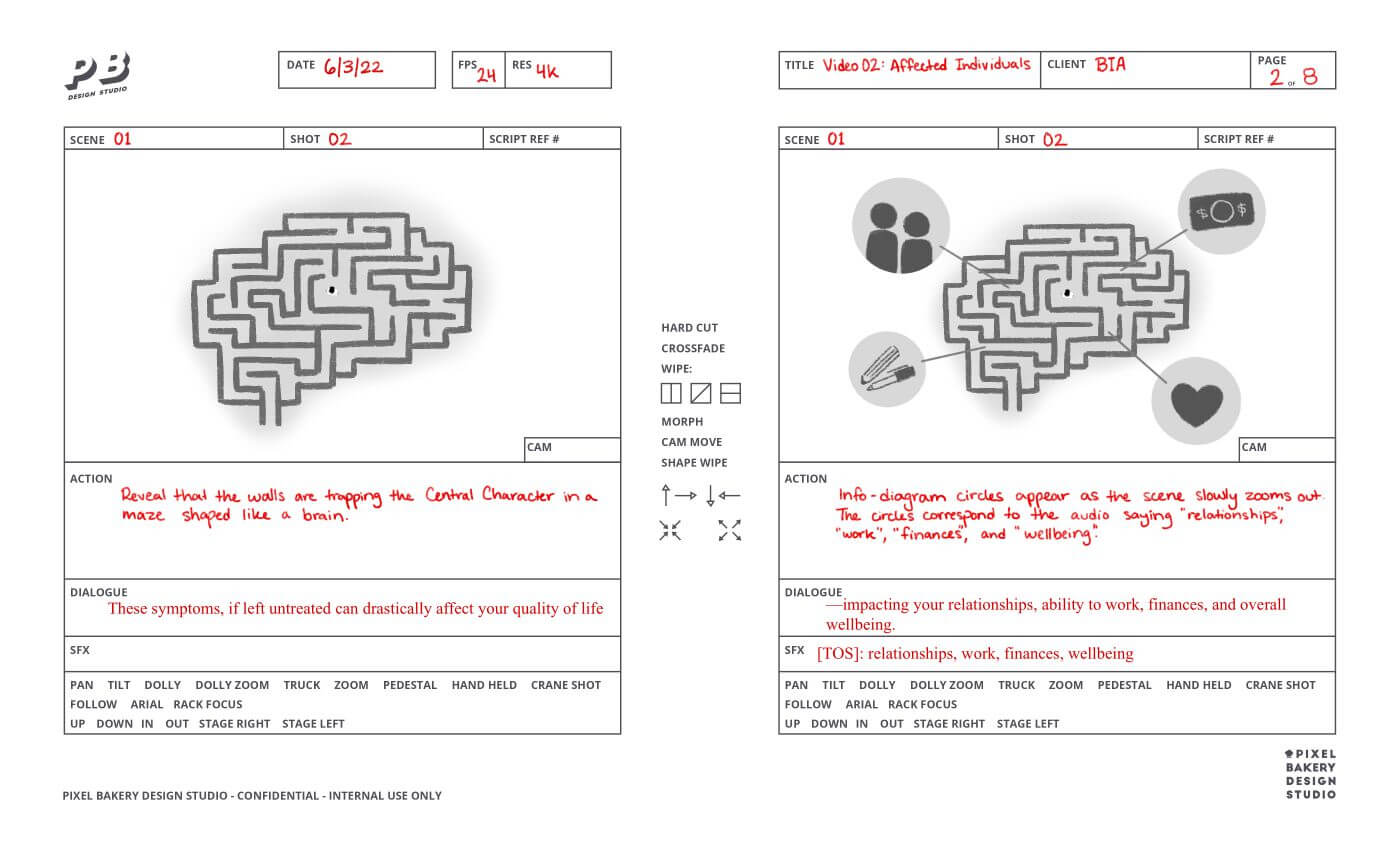 PB
DESIGN STUDIO
DATE 6/3/22
FPS 24
RES 4K
TITLE Video 02: Affected Individuals
CLIENT BIA
PAGE
2 OF 8
SCENE 01
SHOT 02
SCRIPT REF #
CAM
ACTION
Reveal that the walls are trapping the Central Character in a
maze shaped like a brain.
DIALOGUE
These symptoms, if left untreated can drastically affect your quality of life
SFX
PAN TILT DOLLY DOLLY ZOOM TRUCK ZOOM PEDESTAL HAND HELD CRANE SHOT
FOLLOW ARIAL RACK FOCUS
UP DOWN IN OUT STAGE RIGHT STAGE LEFT
HARD CUT
CROSSFADE
WIPE:
MORPH
CAM MOVE
SHAPE WIPE
SCENE 01
SHOT 02
SCRIPT REF #
$ $
CAM
ACTION
Info-diagram circles appear as the scene slowly zooms out.
The circles correspond to the audio saying "relationships",
"work", "finances", and "wellbeing".
DIALOGUE
—impacting your relationships, ability to work, finances, and overall
wellbeing.
SFX [TOS]: relationships, work, finances, wellbeing
PAN TILT DOLLY DOLLY ZOOM TRUCK ZOOM PEDESTAL HAND HELD CRANE SHOT
FOLLOW ARIAL RACK FOCUS
UP DOWN IN OUT STAGE RIGHT STAGE LEFT
PIXEL BAKERY DESIGN STUDIO - CONFIDENTIAL - INTERNAL USE ONLY
PIXEL
BAKERY
DESIGN
STUDIO